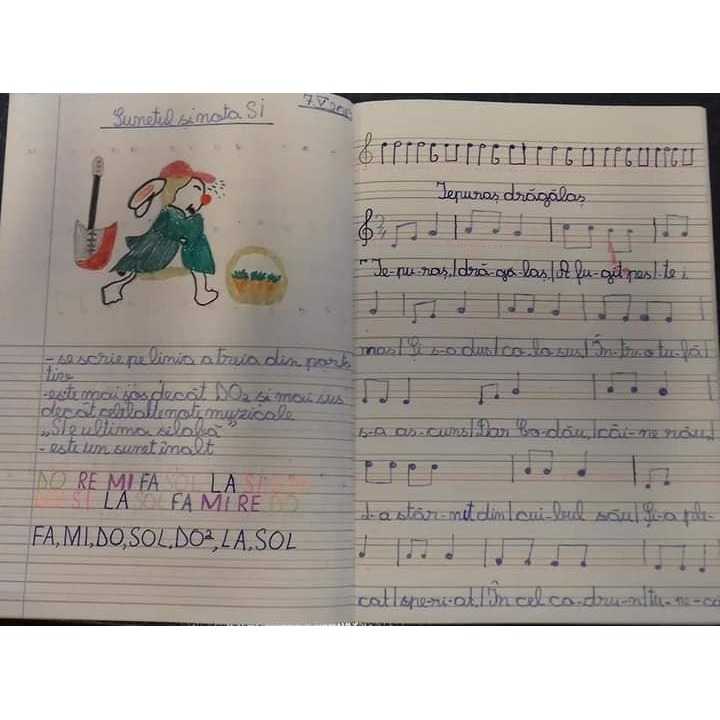 7 V
Sunetul și nota SI
- se scrie pe linia a treia din port
tiv
- este mai jos decât DO2 și mai sus
decât celelalte note muzicale
"SI e ultima silabă"
- este un sunet înalt
DO RE MI FA SOL LA SI
SI LA SOL FA MI RE DO
FA, MI, DO, SOL, DO², LA, SOL
Iepuraș drăgălaș
Ie-pu-raș, | dră-gă-laș, | A fu-git pes-te
mas | Și s-a dus | ca la sus | În-tr-o tu-fă |
s-a as-cuns | Dar Co-dău, | câi-ne rău, |
L-a stâr-nit din | cui-bul său | Și-a ple-
cat | spe-ri-at, | În cel co-dru-n | tu-ne-ca